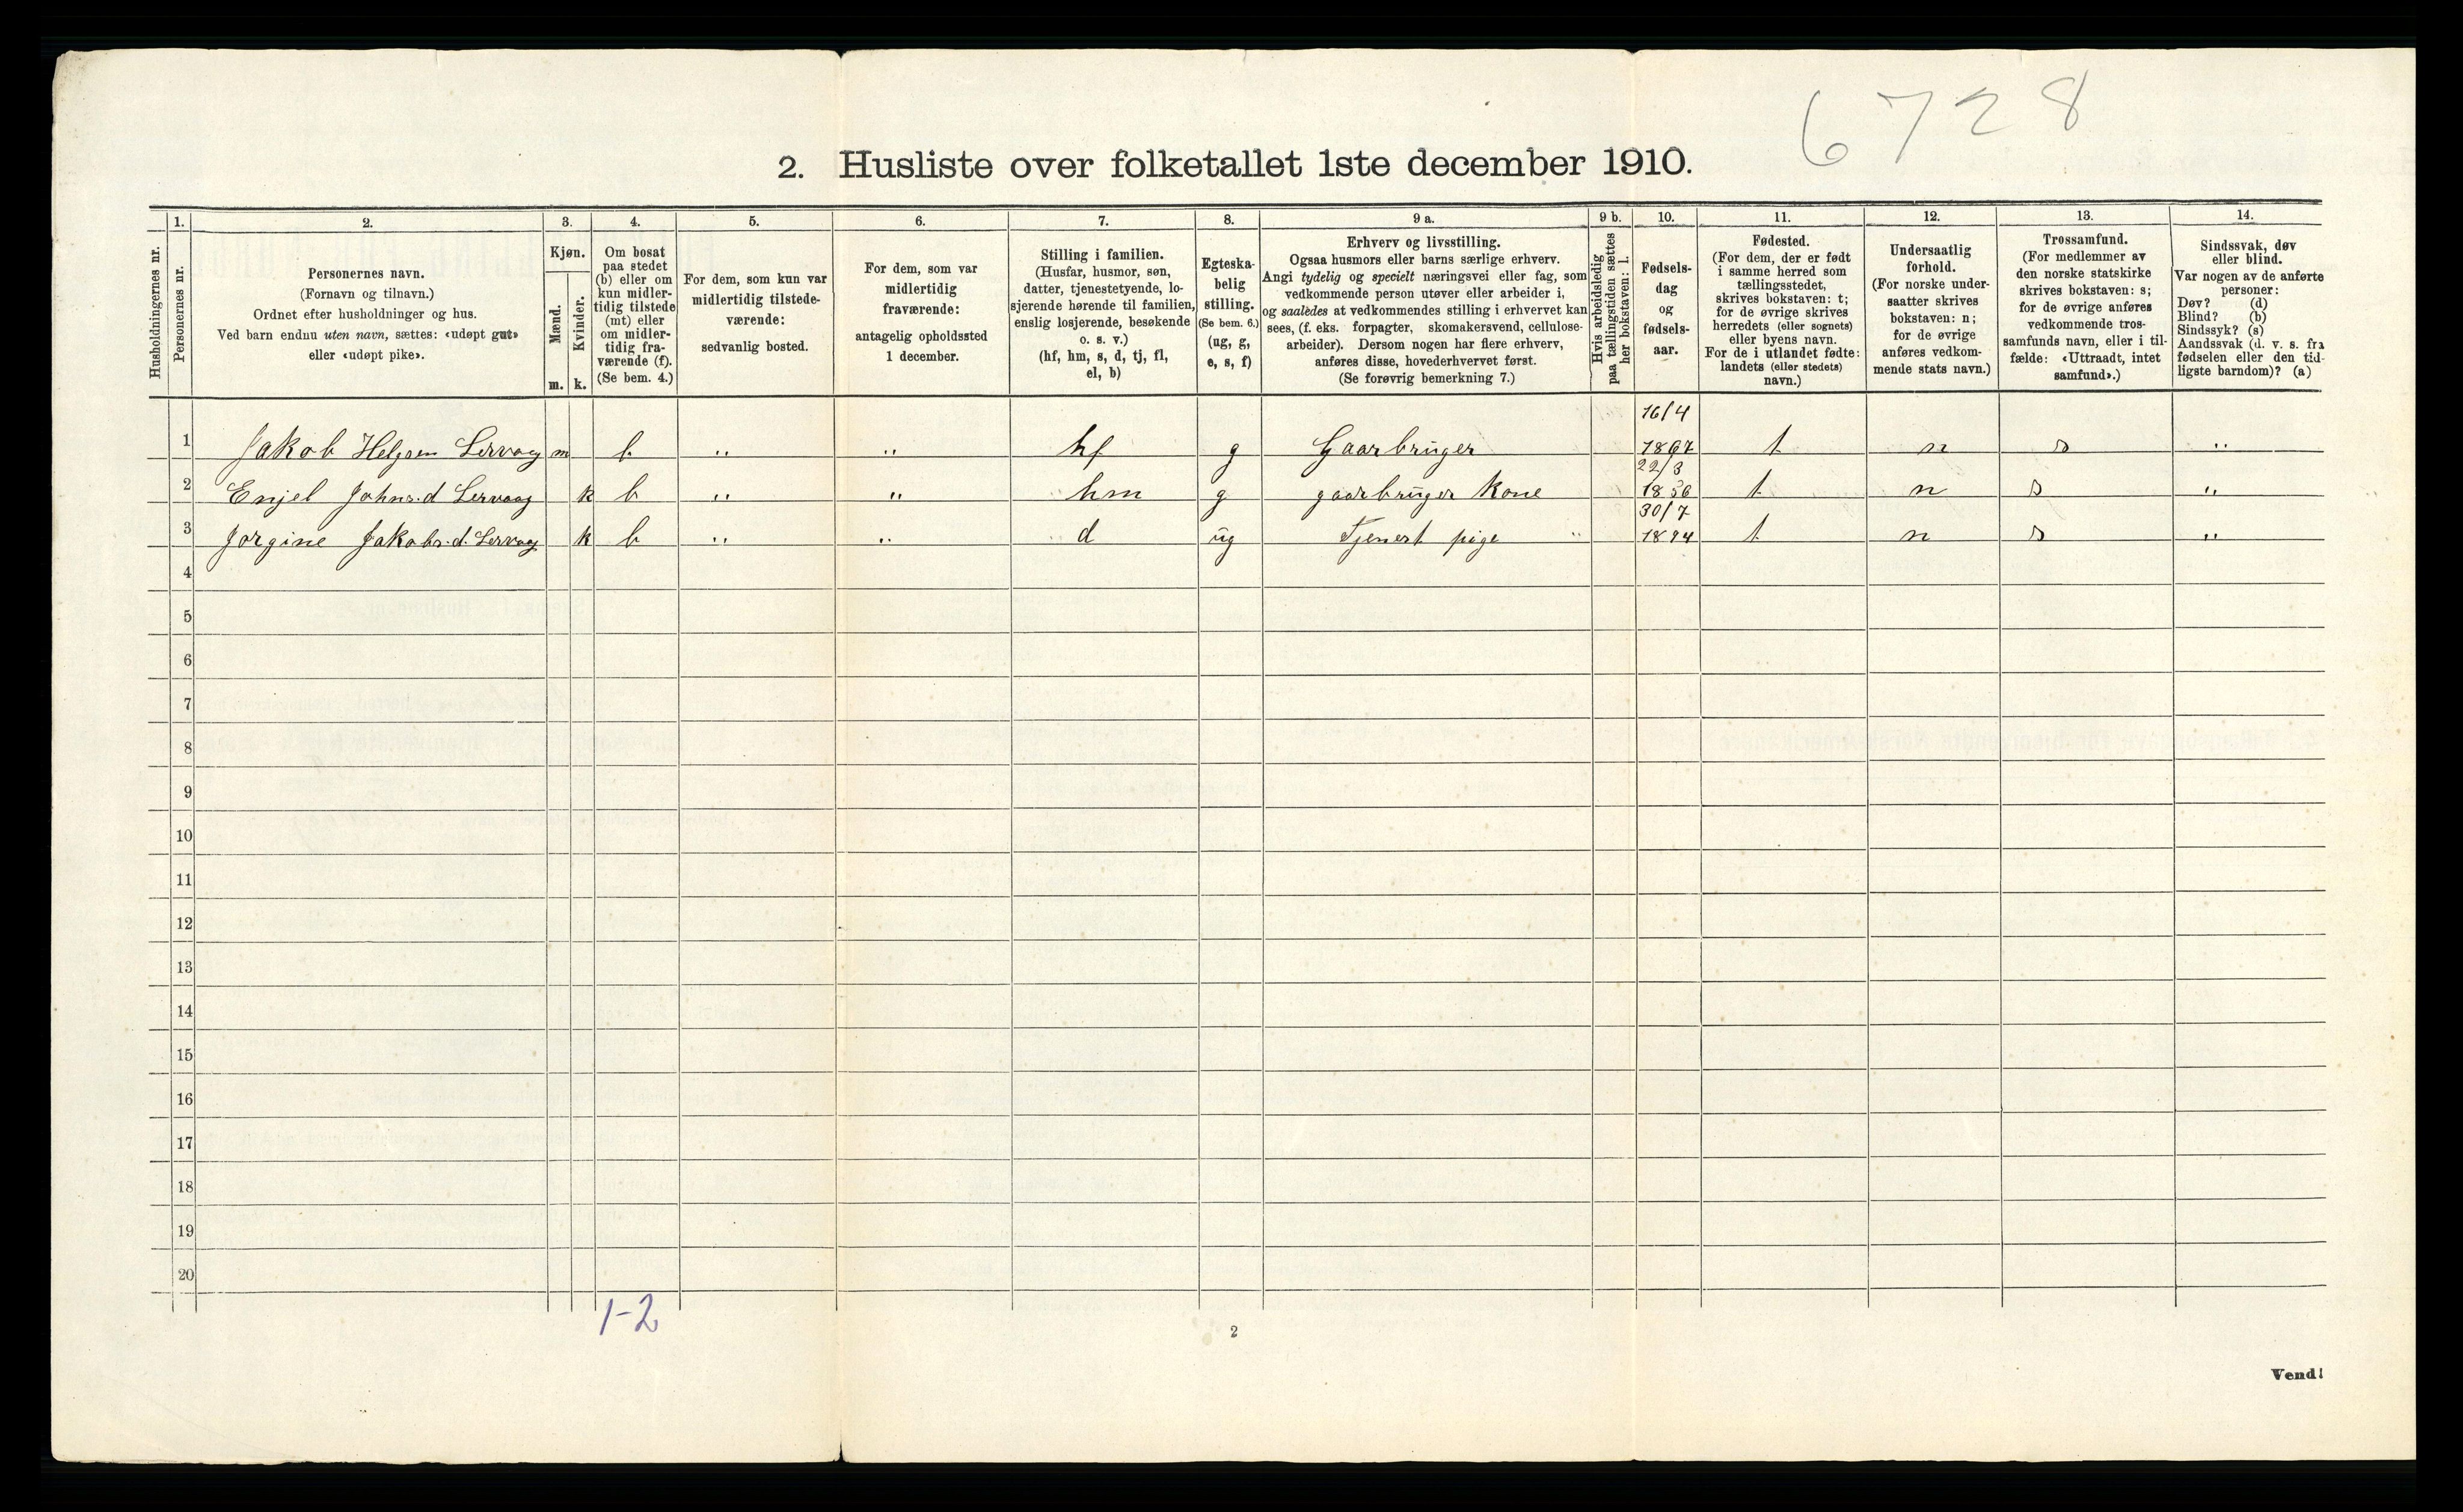 6728
2. Husliste over folketallet 1ste december 1910.
Husholdningernes nr.
1.
Personernes nr.
2.
Personernes navn.
(Fornavn og tilnavn.)
Ordnet efter husholdninger og hus.
Ved barn endnu uten navn, sættes: «udøpt gut»
eller «udøpt pike».
3.
Kjøn.
Mænd.
m.
Kvinder.
k.
4.
Om bosat
paa stedet
(b) eller om
kun midler-
tidig tilstede
(mt) eller
om midler-
tidig fra-
værende (f).
(Se bem. 4.)
5.
For dem, som kun var
midlertidig tilstede-
værende:
sedvanlig bosted.
6.
For dem, som var
midlertidig
fraværende:
antagelig opholdssted
1 december.
7.
Stilling i familien.
(Husfar, husmor, søn,
datter, tjenestetyende, lo-
sjerende hørende til familien,
enslig losjerende, besøkende
o. s. v.)
(hf, hm, s, d, tj, fl,
el, b)
8.
Egteska-
belig
stilling.
(Se bem. 6.)
(ug, g,
e, s, f)
9 a.
Erhverv og livsstilling.
Ogsaa husmors eller barns særlige erhverv.
Angi tydelig og specielt næringsvei eller fag, som
vedkommende person utøver eller arbeider i,
og saaledes at vedkommendes stilling i erhvervet kan
sees, (f. eks. forpagter, skomakersvend, cellulose-
arbeider). Dersom nogen har flere erhverv,
anføres disse, hovederhvervet først.
(Se forøvrig bemerkning 7.)
9 b.
Hvis arbeidsledig
paa tællingstiden sættes
her bokstaven: l.
10.
Fødsels-
dag
og
fødsels-
aar.
11.
Fødested.
(For dem, der er født
i samme herred som
tællingsstedet,
skrives bokstaven: t;
for de øvrige skrives
herredets (eller sognets)
eller byens navn.
For de i utlandet fødte:
landets (eller stedets)
navn.)
12.
Undersaatlig
forhold.
(For norske under-
saatter skrives
bokstaven: n;
for de øvrige
anføres vedkom-
mende stats navn.)
13.
Trossamfund.
(For medlemmer av
den norske statskirke
skrives bokstaven: s;
for de øvrige anføres
vedkommende tros-
samfunds navn, eller i til-
fælde: «Uttraadt, intet
samfund».)
14.
Sindssvak, døv
eller blind.
Var nogen av de anførte
personer:
Døv? (d)
Blind? (b)
Sindssyk? (s)
Aandssvak (d. v. s. fra
fødselen eller den tid-
ligste barndom)? (a)
16/4
1 Jakob Helgsen Lervaag m b " " hf g Gaarbruger 1867 t n s "
22/3
2 Enjel Johns.d Lervaag k b " " hm g gaarbruger Kone 1856 t n s "
30/7
3 Jorgine Jakobs.d. Lervaag k b " " d ug Tjenest pige " 1894 t n s "
4
5
6
7
8
9
10
11
12
13
14
15
16
17
18
19
20
1-2
2
Vend!